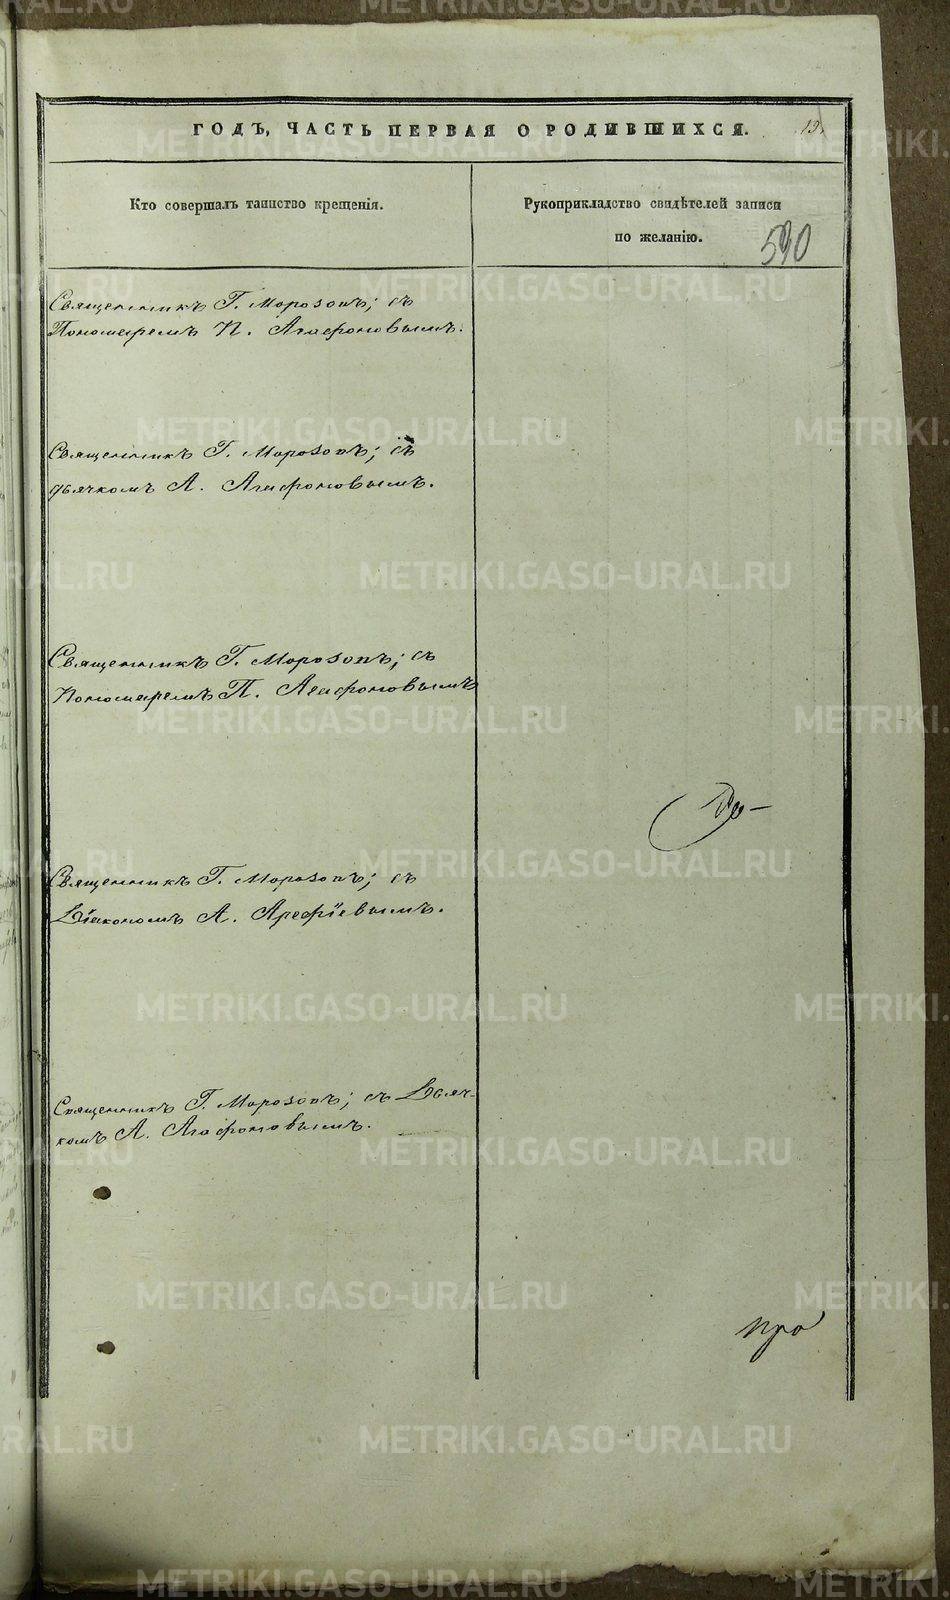 ГОДЪ, ЧАСТЬ ПЕРВАЯ О РОДИВШИХСЯ.
13
Кто совершалъ таинство крещенія.
Рукоприкладство свидѣтелей записи
по желанію.
590
Священникъ Г. Морозовъ; съ
Пономаремъ П. Агафоновымъ.
Священникъ Г. Морозовъ; съ
дьячкомъ А. Агафоновымъ.
Священникъ Г. Морозовъ; съ
Пономаремъ П. Агафоновымъ
Священникъ Г. Морозовъ; съ
Діакономъ А. Арефіевымъ.
Священникъ Г. Морозовъ; съ Дьяч-
комъ А. Агафоновымъ.
про
METRIKI.GASO-URAL.RU